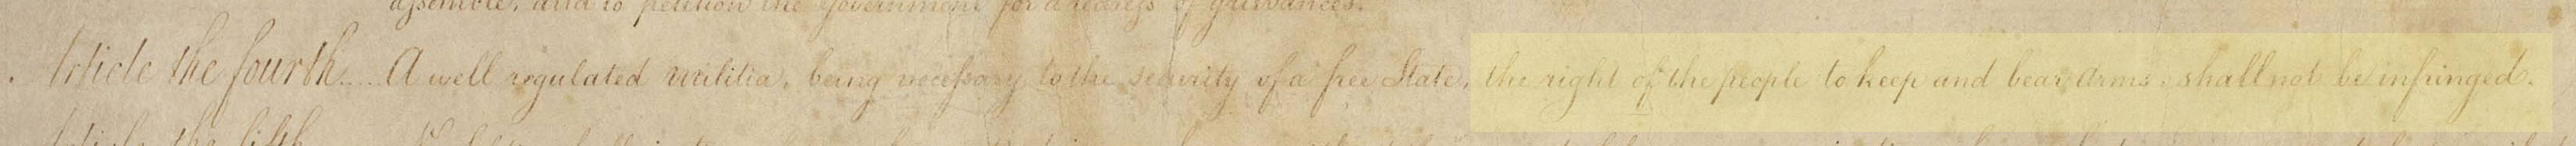 assemble, and to petition the Government for a redress of grievances.
Article the fourth..... A well regulated Militia, being necessary to the security of a free State, the right of the people to keep and bear Arms, shall not be infringed.
Article the fifth